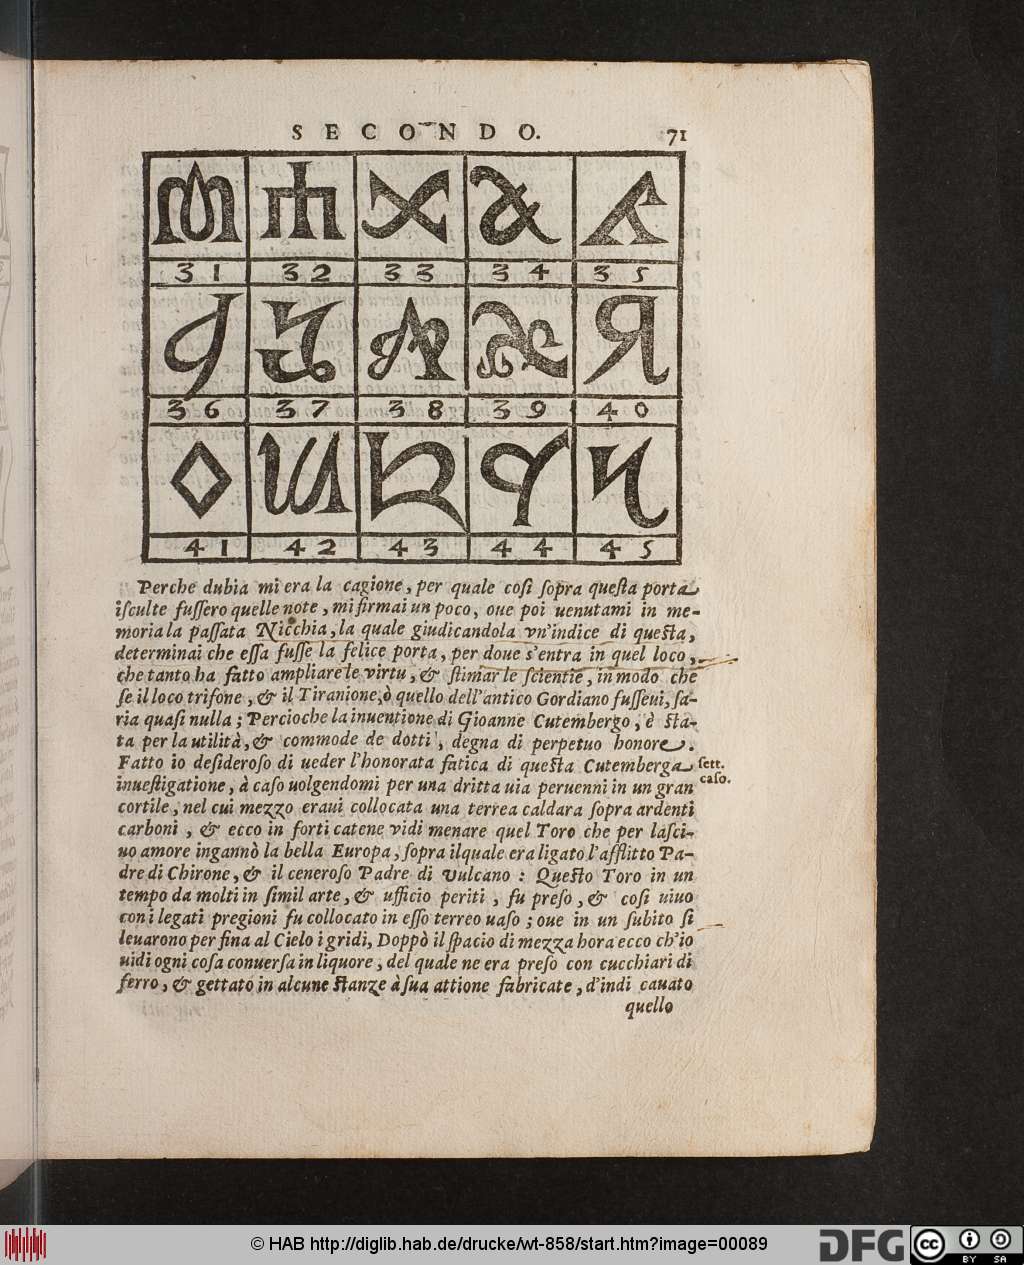 SECONDO. 71
31 32 33 34 35
36 37 38 39 40
41 42 43 44 45
Perche dubia mi era la cagione, per quale cosi ſopra queſta porta
iſculte fuſſero quelle note, mi firmai un poco, oue poi uenutami in me-
moria la paſſata Nicchia, la quale giudicandola vn'indice di queſta,
determinai che eſſa fuſſe la felice porta, per doue s'entra in quel loco,
che tanto ha fatto ampliare le virtu, & ſtimar le ſcientie, in modo che
ſe il loco trifone, & il Tiranione, ò quello dell'antico Gordiano fuſſeui, ſa-
ria quaſi nulla; Percioche la inuentione di Gioanne Cutembergo, è ſta-
ta per la utilità, & commode de dotti, degna di perpetuo honore.
Fatto io deſideroſo di ueder l'honorata fatica di queſta Cutemberga
ſett.
caſo.
inueſtigatione, à caſo uolgendomi per una dritta uia peruenni in un gran
cortile, nel cui mezzo eraui collocata una terrea caldara ſopra ardenti
carboni, & ecco in forti catene vidi menare quel Toro che per laſci-
uo amore ingannò la bella Europa, ſopra il quale era ligato l'afflitto Pa-
dre di Chirone, & il ceneroſo Padre di Vulcano: Queſto Toro in un
tempo da molti in ſimil arte, & ufficio periti, fu preſo, & coſi uiuo
con i legati pregioni fu collocato in eſſo terreo uaſo; oue in un ſubito ſi
leuarono per fina al Cielo i gridi, Doppò il ſpacio di mezza hora ecco ch'io
uidi ogni coſa conuerſa in liquore, del quale ne era preſo con cucchiari di
ferro, & gettato in alcune ſtanze à ſua attione fabricate, d'indi cauato
quello
© HAB http://diglib.hab.de/drucke/wt-858/start.htm?image=00089
DFG cc BY SA